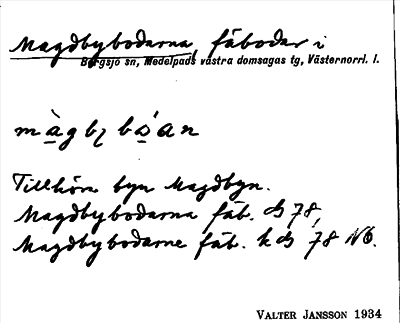 Magdbybodarna, fäbodar i
Bergsjö sn, Medelpads västra domsagas tg, Västernorrl. l.
Tillhöra byn Magdbyn.
Magdbybodarna fäb. 78,
Magdbybodarne fäb. 78 Nb.
VALTER JANSSON 1934